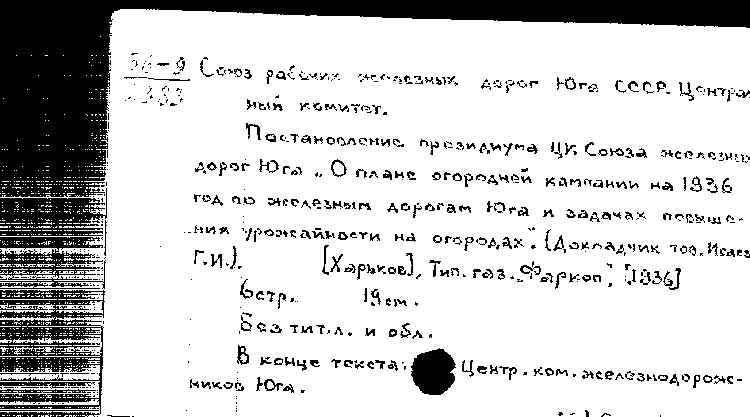 56-9 Союз рабочих железных дорог Юга СССР. Центральный
ный комитет.
Постановление президиума ЦК Союза железных
дорог Юга „О плане огородней кампании на 1936
год по железным дорогам Юга и задачах повыше-
ния урожайности на огородах". (Докладчик тов. Исаев
Г.И.). [Харьков], Тип. газ. „Фаркоп", [1936]
6 стр. 19 см.
Без тит. л. и обл.
В конце текста: Центр. ком. железнодорож-
ников Юга.